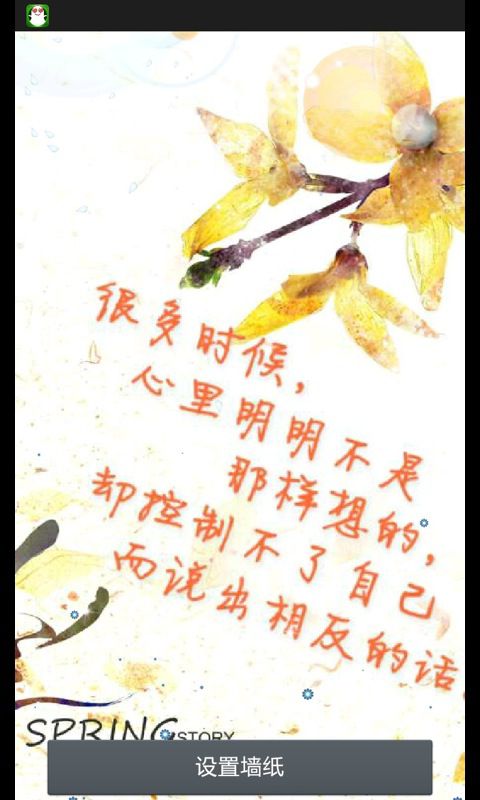 很多时候,
心里明明不是
那样想的,
却控制不了自己
而说出相反的话
SPRING STORY
设置墙纸